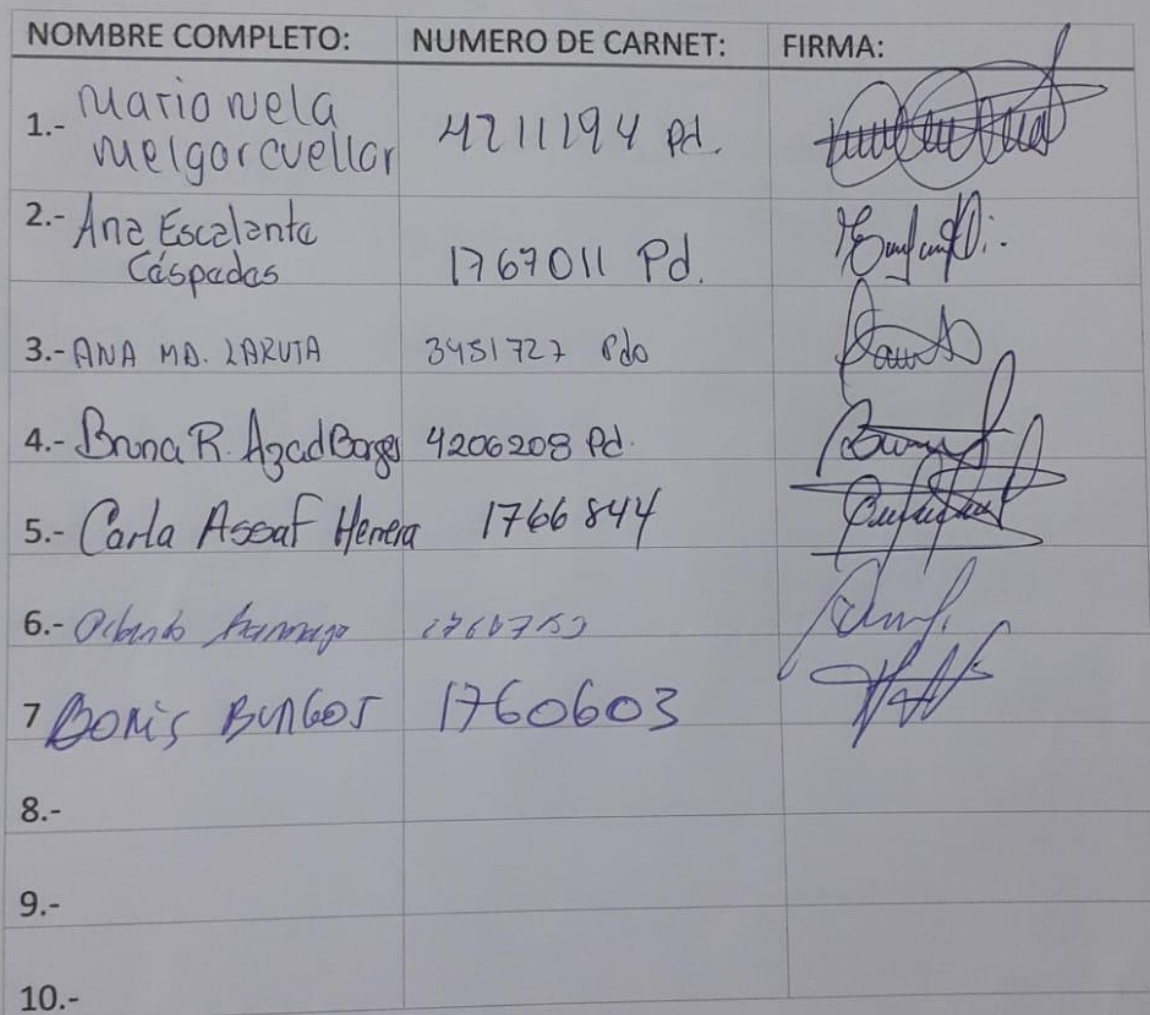 NOMBRE COMPLETO: NUMERO DE CARNET: FIRMA:
1.- Mario Nela
Melgar Cuellar 4211194 Pd.
2.- Ana Escalante
Céspedes 1767011 Pd.
3.- ANA MA. LARUTA 3451727 Pdo
4.- Bruna R. Azad Borges 4206208 Pd.
5.- Carla Assaf Herrera 1766844
6.-
7 Boris BURGOS 1760603
8.-
9.-
10.-